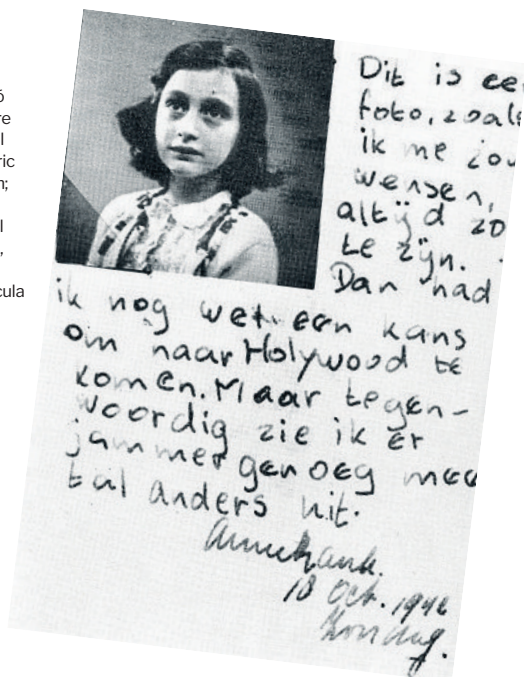 ó
re
l
ric
n;
l
,
cula
Dit is ee
foto, zoals
ik me zou
wensen,
altijd zo
te zijn.
Dan had
ik nog wel een kans
om naar Holywood te
komen. Maar tegen-
woordig zie ik er
jammer genoeg mee
tal anders uit.
Anne Frank.
18 Oct. 1942
Zondag.